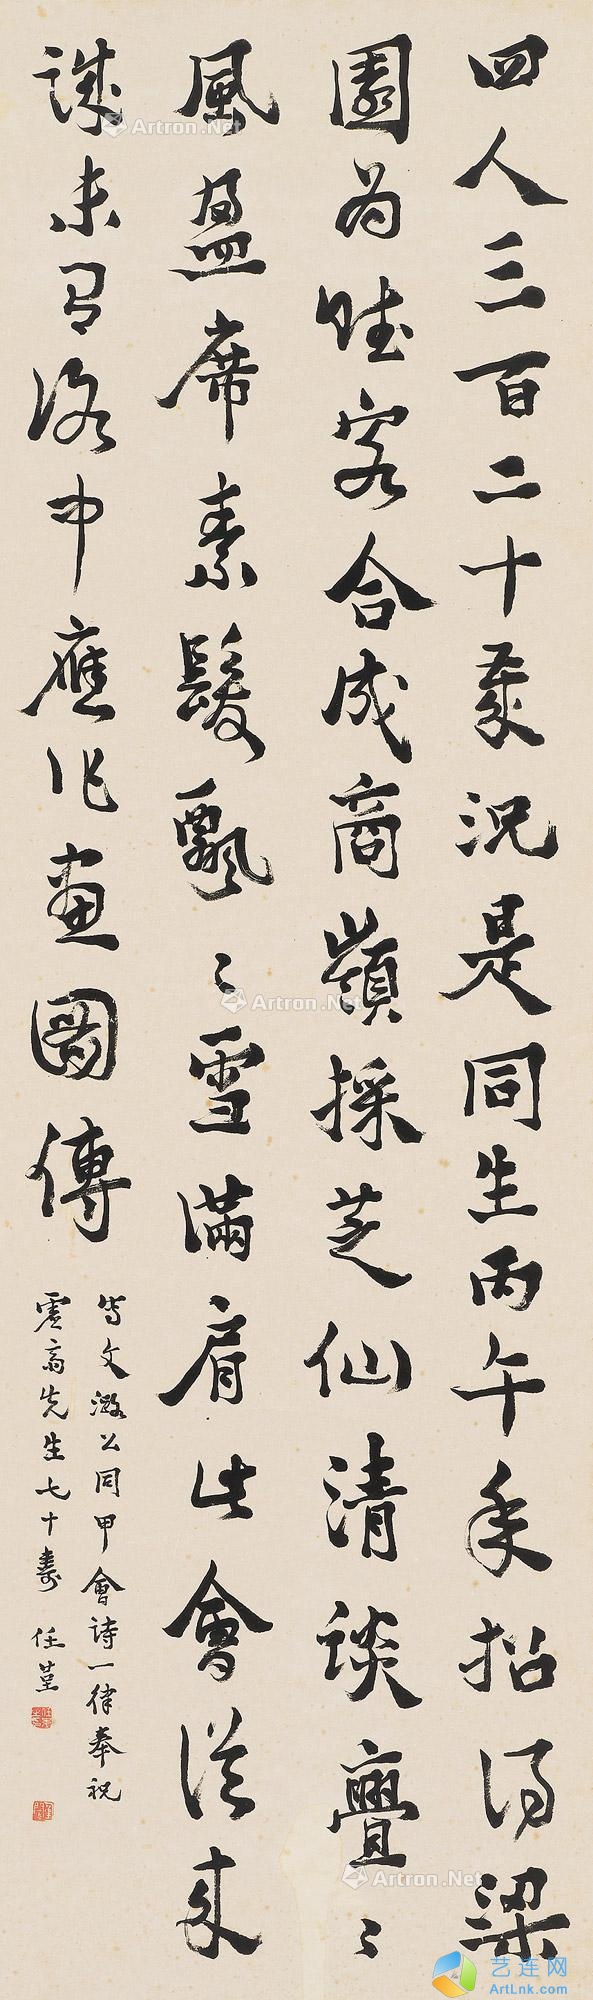 四人三百二十歲況是同生丙午年招得梁
園為賦客合成商嶺採芝仙清談亹〻
風盈席素髮飄〻雪滿肩此會從來
誠未有洛中應作畫圖傳
寫文潞公同甲會詩一律奉祝
虛齋先生七十壽 任堇
Artron.Net
Artron.Net
Artron.Net
Artron.Net
艺连网
ArtLnk.com